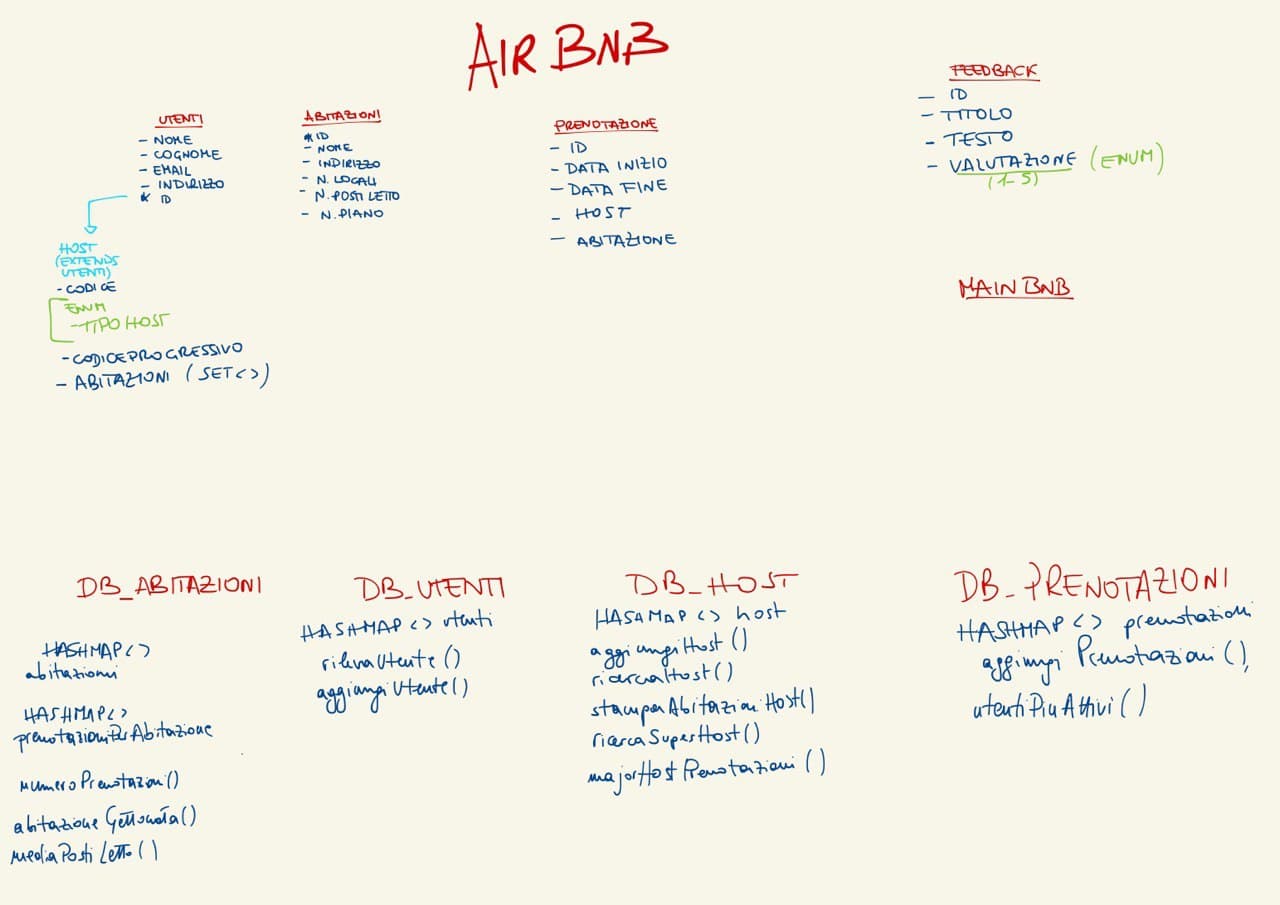 AIR BNB
UTENTI
- NOME
- COGNOME
- EMAIL
- INDIRIZZO
* ID
HOST
(EXTENDS
UTENTI)
- CODICE
ENUM
- TIPO HOST
- CODICEPROGRESSIVO
- ABITAZIONI (SET<>)
ABITAZIONI
* ID
- NOME
- INDIRIZZO
- N. LOCALI
- N. POSTI LETTO
- N. PIANO
PRENOTAZIONE
- ID
- DATA INIZIO
- DATA FINE
- HOST
- ABITAZIONE
FEEDBACK
- ID
- TITOLO
- TESTO
- VALUTAZIONE (ENUM)
(1-5)
MAIN BNB
DB_ABITAZIONI
HASHMAP<>
abitazioni
HASHMAP<>
prenotazioniPerAbitazione
numeroPrenotazioni()
abitazioneGettonata()
mediaPostiLetto()
DB_UTENTI
HASHMAP<> utenti
rilevaUtente()
aggiungiUtente()
DB_HOST
HASHMAP<> host
aggiungiHost()
ricercaHost()
stampaAbitazioniHost()
ricercaSuperHost()
majorHostPrenotazioni()
DB_PRENOTAZIONI
HASHMAP<> prenotazioni
aggiungiPrenotazioni(),
utentiPiuAttivi()